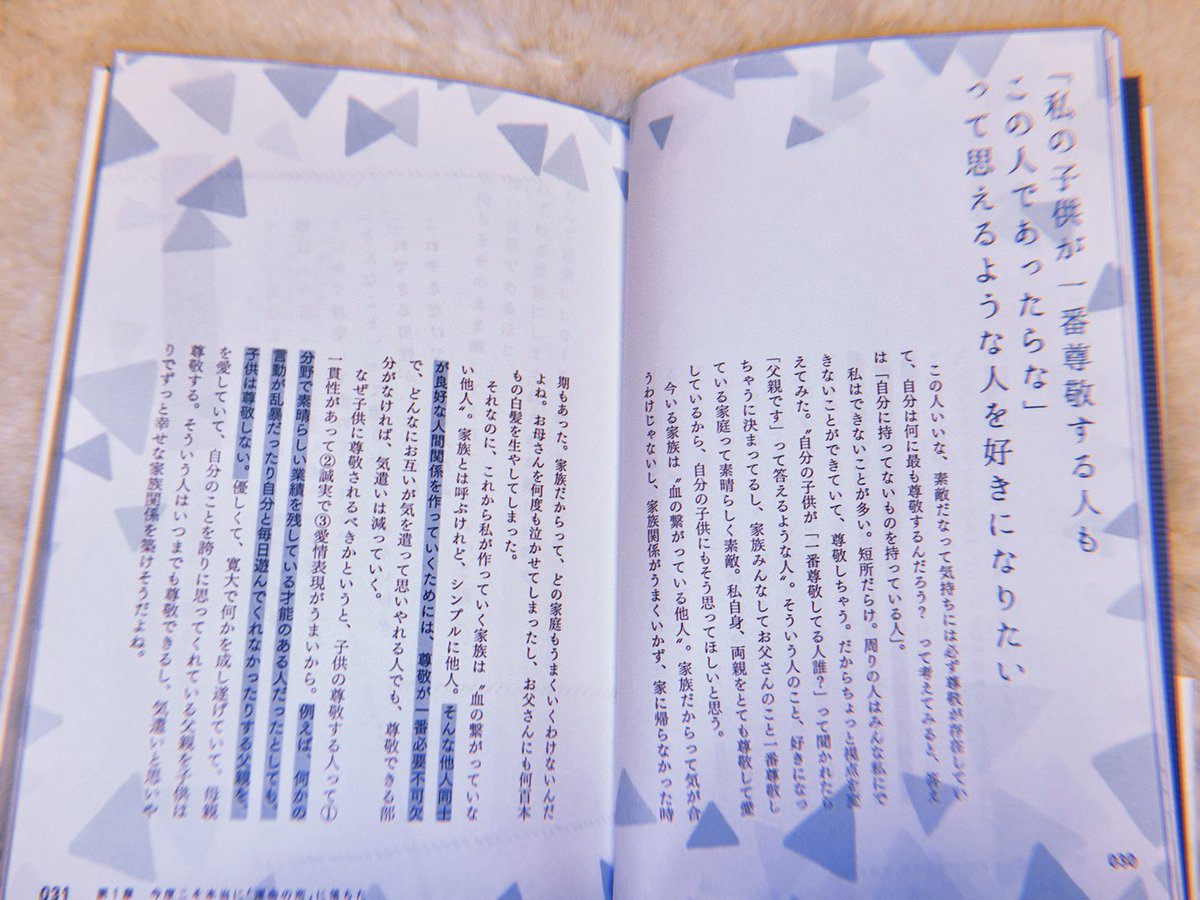 「私の子供が一番尊敬する人も
この人であったらな」
って思えるような人を好きになりたい
この人いいな、素敵だなって気持ちには必ず尊敬が存在してい
て、自分は何に最も尊敬するんだろう？ って考えてみると、答え
は「自分に持ってないものを持っている人」。
私はできないことが多い。短所だらけ。周りの人はみんな私にで
きないことができていて、尊敬しちゃう。だからちょっと視点を変
えてみた。〝自分の子供が「一番尊敬してる人誰？」って聞かれたら
「父親です」って答えるような人〟。そういう人のこと、好きになっ
ちゃうに決まってるし、家族みんなしてお父さんのこと一番尊敬し
ている家庭って素晴らしく素敵。私自身、両親をとても尊敬して愛
しているから、自分の子供にもそう思ってほしいと思う。
今いる家族は〝血の繋がっている他人〟。家族だからって気が合
うわけじゃないし、家族関係がうまくいかず、家に帰らなかった時
030
期もあった。家族だからって、どの家庭もうまくいくわけないんだ
よね。お母さんを何度も泣かせてしまったし、お父さんにも何百本
もの白髪を生やしてしまった。
それなのに、これから私が作っていく家族は〝血の繋がっていな
い他人〟。家族とは呼ぶけれど、シンプルに他人。そんな他人同士
が良好な人間関係を作っていくためには、尊敬が一番必要不可欠
で、どんなにお互いが気を遣って思いやれる人でも、尊敬できる部
分がなければ、気遣いは減っていく。
なぜ子供に尊敬されるべきかというと、子供の尊敬する人って①
一貫性があって②誠実で③愛情表現がうまいから。例えば、何かの
分野で素晴らしい業績を残している才能のある人だったとしても、
言動が乱暴だったり自分と毎日遊んでくれなかったりする父親を、
子供は尊敬しない。優しくて、寛大で何かを成し遂げていて。母親
を愛していて、自分のことを誇りに思ってくれている父親を子供は
尊敬する。そういう人はいつまでも尊敬できるし、気遣いと思いや
りでずっと幸せな家族関係を築けそうだよね。
031